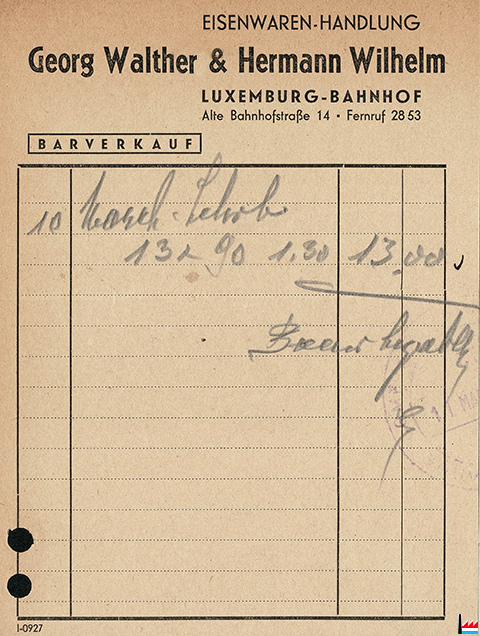 EISENWAREN-HANDLUNG
Georg Walther & Hermann Wilhelm
LUXEMBURG-BAHNHOF
Alte Bahnhofstraße 14 • Fernruf 28 53
BARVERKAUF
10 Masch. Schrb
13 x 90 1.30 13.00
bezahlt
11 MA
I-0927